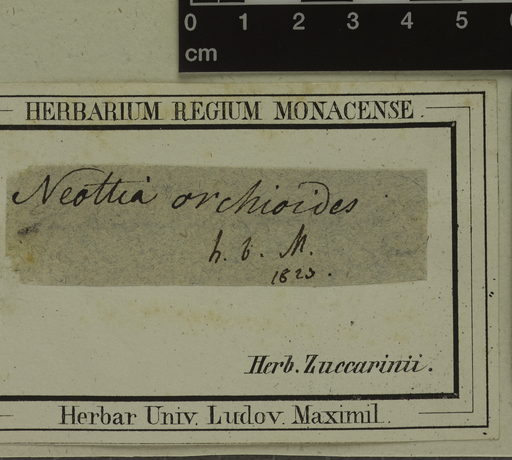 0 1 2 3 4 5
cm
HERBARIUM REGIUM MONACENSE.
Neottia orchioides
h. b. M.
1823.
Herb. Zuccarinii.
Herbar Univ. Ludov. Maximil.